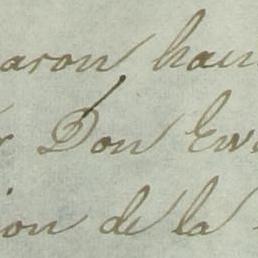 aron han
r Don Ew
ion de la